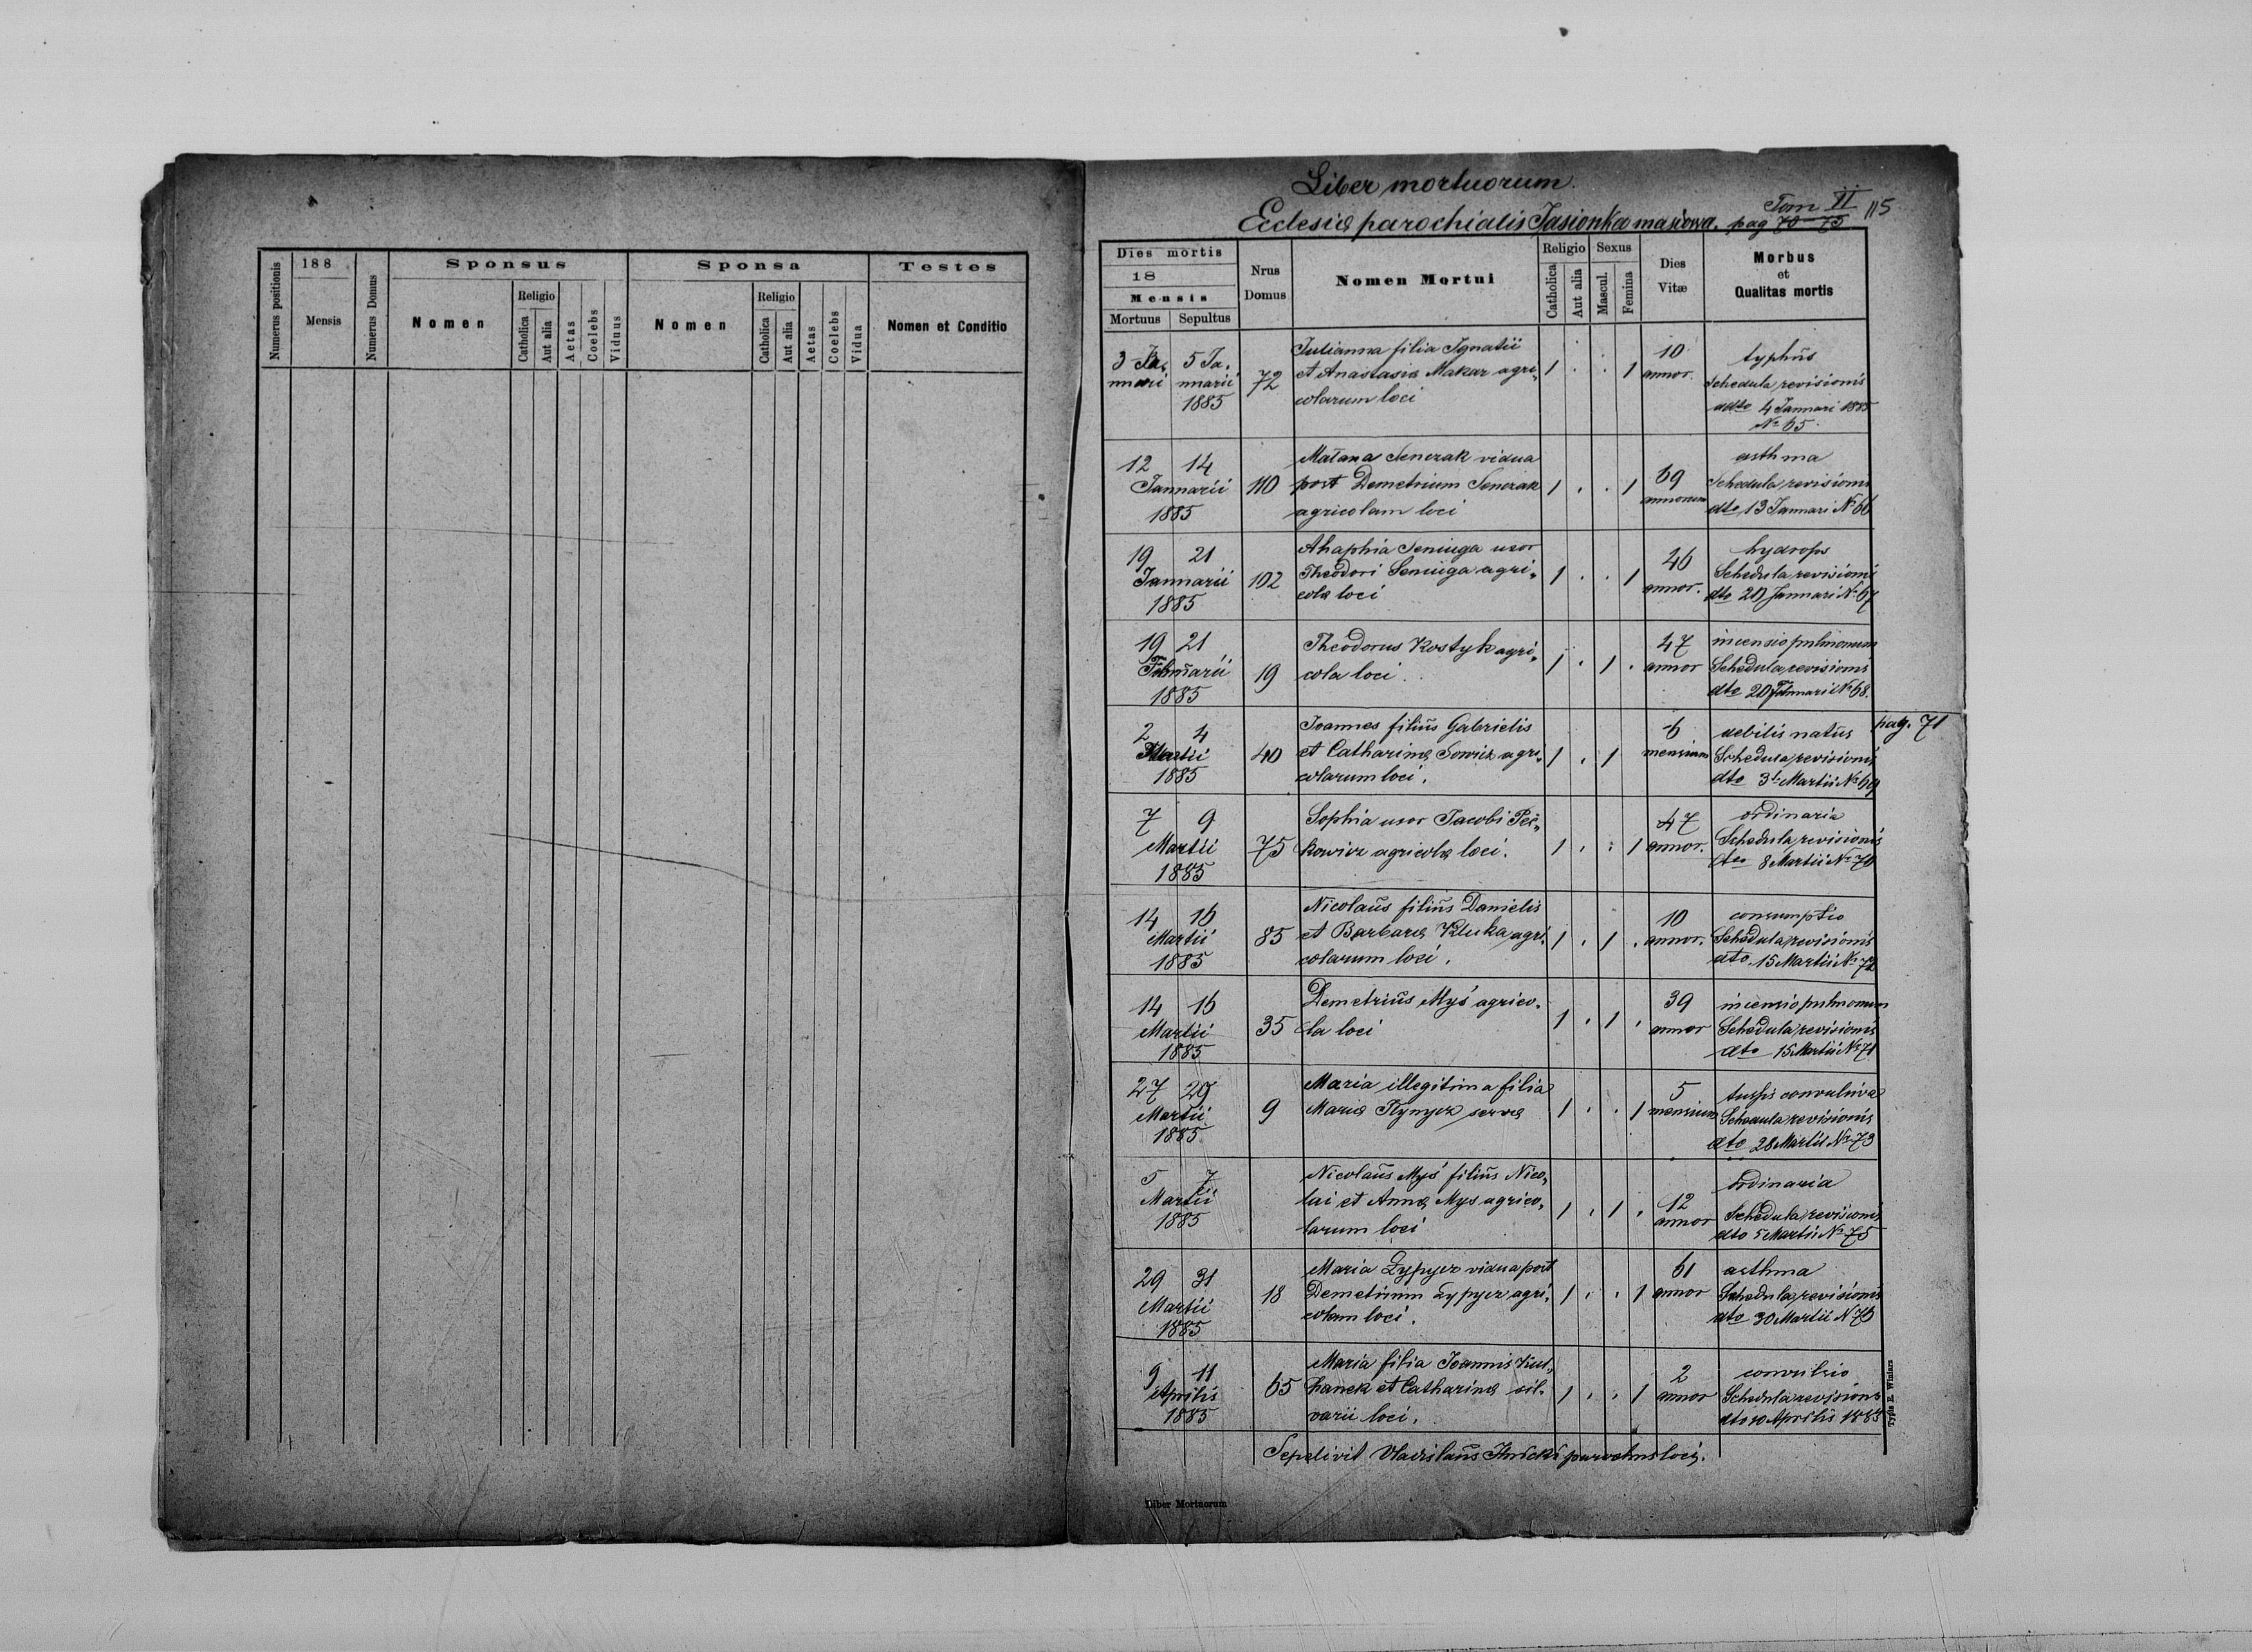 Numerus positionis
188
Mensis
Numerus Domus
Sponsus
Nomen
Religio
Catholica
Aut alia
Aetas
Coelebs
Viduus
Sponsa
Nomen
Religio
Catholica
Aut alia
Aetas
Coelebs
Vidua
Testes
Nomen et Conditio
Liber mortuorum.
Tom II 115
Eclesiæ parochialis Jasionka masiowa. pag 70 75
Dies mortis
18
Mensis
Mortuus Sepultus
Nrus
Domus
Nomen Mortui
Religio Sexus
Catholica
Aut alia
Mascul.
Femina
Dies
Vitæ
Morbus
et
Qualitas mortis
3 Ja- 5 Ja-
nuarii nuarii
1885
72
Julianna filia Ignatii
et Anastasiæ Makar agri-
colarum loci
1 . . 1
10
annor.
typhus
Schedula revisionis
ddto 4 Januari 1885
No 65.
12 14
Januarii
1885
110
Matrona Senczak vidua
post Demetrium Senczak
agricolam loci
1 . . 1
69
annorum
asthma
Schedula revisionis
dto 13 Januari No 66
19 21
Januarii
1885
102
Ahaphia Seniuga uxor
Theodori Seniuga agri-
colæ loci
1 . . 1
46
annor.
hydrops
Schedula revisionis
dto 20 Januari No 67
19 21
Februarii
1885
19
Theodorus Kostyk agri-
cola loci.
1 . 1 .
47
annor
incensio pulmonum
Schedula revisionis
dto 20 Februarii No 68.
2 4
Martii
1885
40
Joannes filius Gabrielis
et Catharinæ Sowicz agri-
colarum loci.
1 . 1
6
mensium
debilis natus
pag. 71
Schedula revisionis
dto 3 Martii No 69
7 9
Martii
1885
75
Sophia uxor Jacobi Pei-
kowicz agricolæ loci.
1 . . 1
47
annor.
ordinaria
Schedula revisionis
dto 8 Martii No 70
14 16
Martii
1885
85
Nicolaus filius Danielis
et Barbaræ Kluka agri-
colarum loci.
1 . 1 .
10
annor.
consumptio
Schedula revisionis
dto. 15 Martii No 72
14 16
Martii
1885
35
Demetrius Myś agrico-
la loci
1 . 1 .
39
annor
incensio pulmonum
Schedula revisionis
dto 15 Martii No 71
27 29
Martii
1885
9
Maria illegitima filia
Mariæ servæ
1 . . 1
5
mensium
tussis convulsiva
Schedula revisionis
dto 28 Martii No 73
5 7
Martii
1885
Nicolaus Myś filius Nico-
lai et Annæ Mys agrico-
larum loci
1 . 1 .
12
annor
ordinaria
Schedula revisionis
dto 5 Martii No 75
29 31
Martii
1885
18
Maria Łypycz vidua post
Demetrium Łypycz agri-
colam loci.
1 . . 1
61
annor
asthma
Schedula revisionis
dto 30 Martii No 76
9 11
Aprilis
1885
65
Maria filia Joannis Kul-
hanek et Catharinæ sil-
varii loci.
1 . . 1
2
annor
convulsio
Schedula revisionis
dto 10 Aprilis 1885
Sepelivit Vladislaus Ilnicki parochus loci.
Typis E. Winiarz
Liber Mortuorum